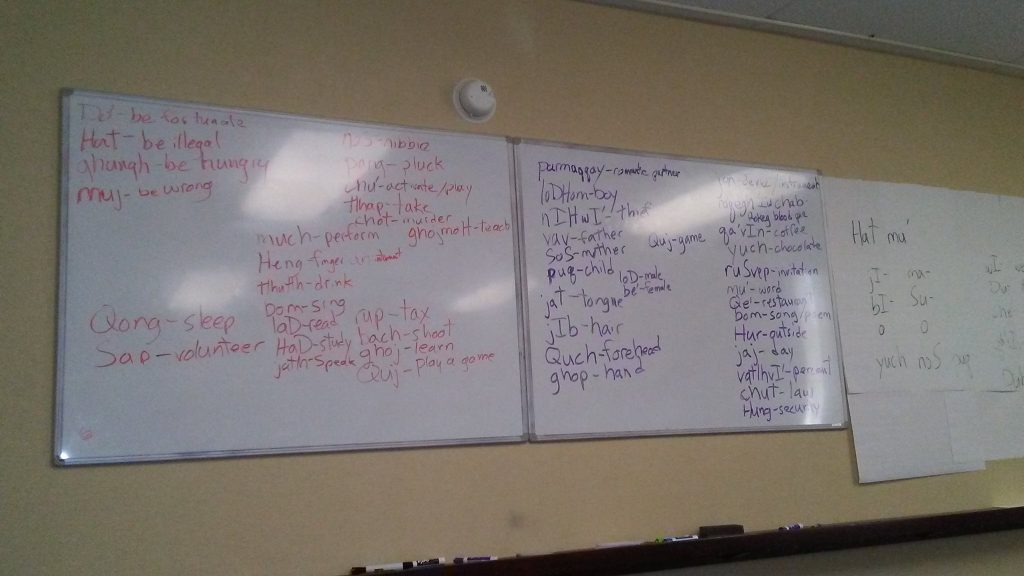 be fortunate
Hat - be illegal
ghungh - be hungry
muj - be wrong
noS - nibble
pang - pluck
chu' - activate/play
tlhap - take
chot - murder
much - perform
ghojmoH - teach
Heng - finger instrument
tlhutlh - drink
bom - sing
laD - read
HaD - study
jatlh - speak
Qong - sleep
Sap - volunteer
cup - tax
bach - shoot
ghoj - learn
Quj - play a game
parmaqqay - romantic partner
loDHom - boy
nIHwI' - thief
vav - father
SoS - mother
puq - child
loD - male
be' - female
jat - tongue
jIb - hair
Quch - forehead
ghop - hand
Quj - game
jan - device/instrument
blood pie
qa'vIn - coffee
yuch - chocolate
ruSvep - invitation
mu' - word
Qe' - restaurant
bom - song/poem
Hur - outside
jaj - day
vatlhvI' - percent
chut - law
Hung - security
Hat mu'
jI- ma-
bI- Su-
0 0
yuch noS puq